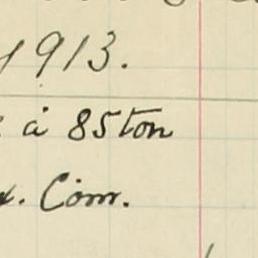 1913.
à 85 ton
Com.